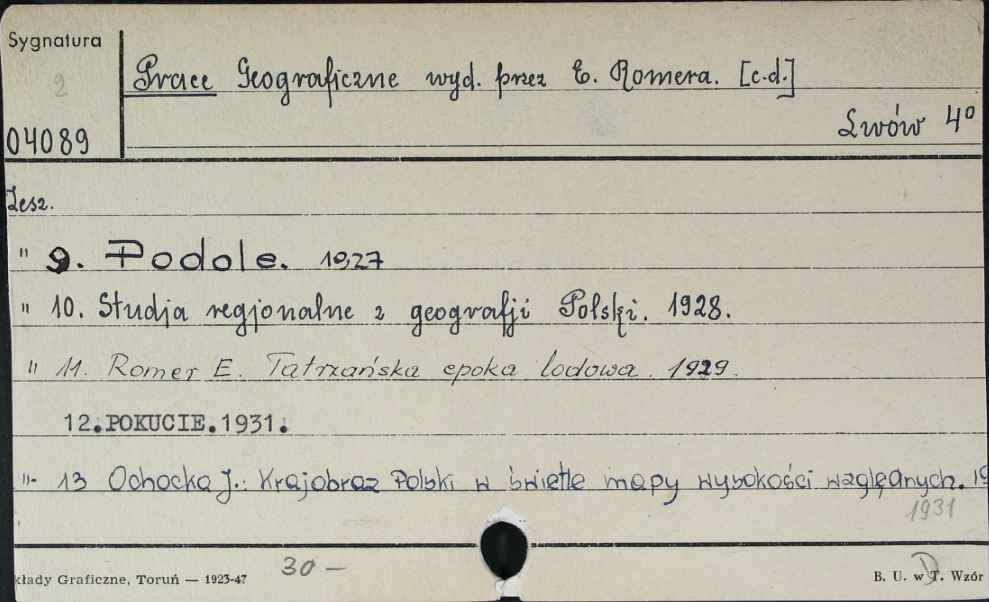 Sygnatura
2
04089
Prace Geograficzne wyd. przez E. Romera. [c.d.]
Lwów 4°
Zesz.
" 9. Podole. 1927
" 10. Studja regjonalne z geografji Polski. 1928.
" 11. Romer E. Tatrzańska epoka lodowa. 1929.
12. POKUCIE. 1931.
"- 13 Ochocka J.: Krajobraz Polski w świetle mapy wysokości względnych. 19
1931
kłady Graficzne, Toruń — 1923-47
30 —
B. U. w T. Wzór